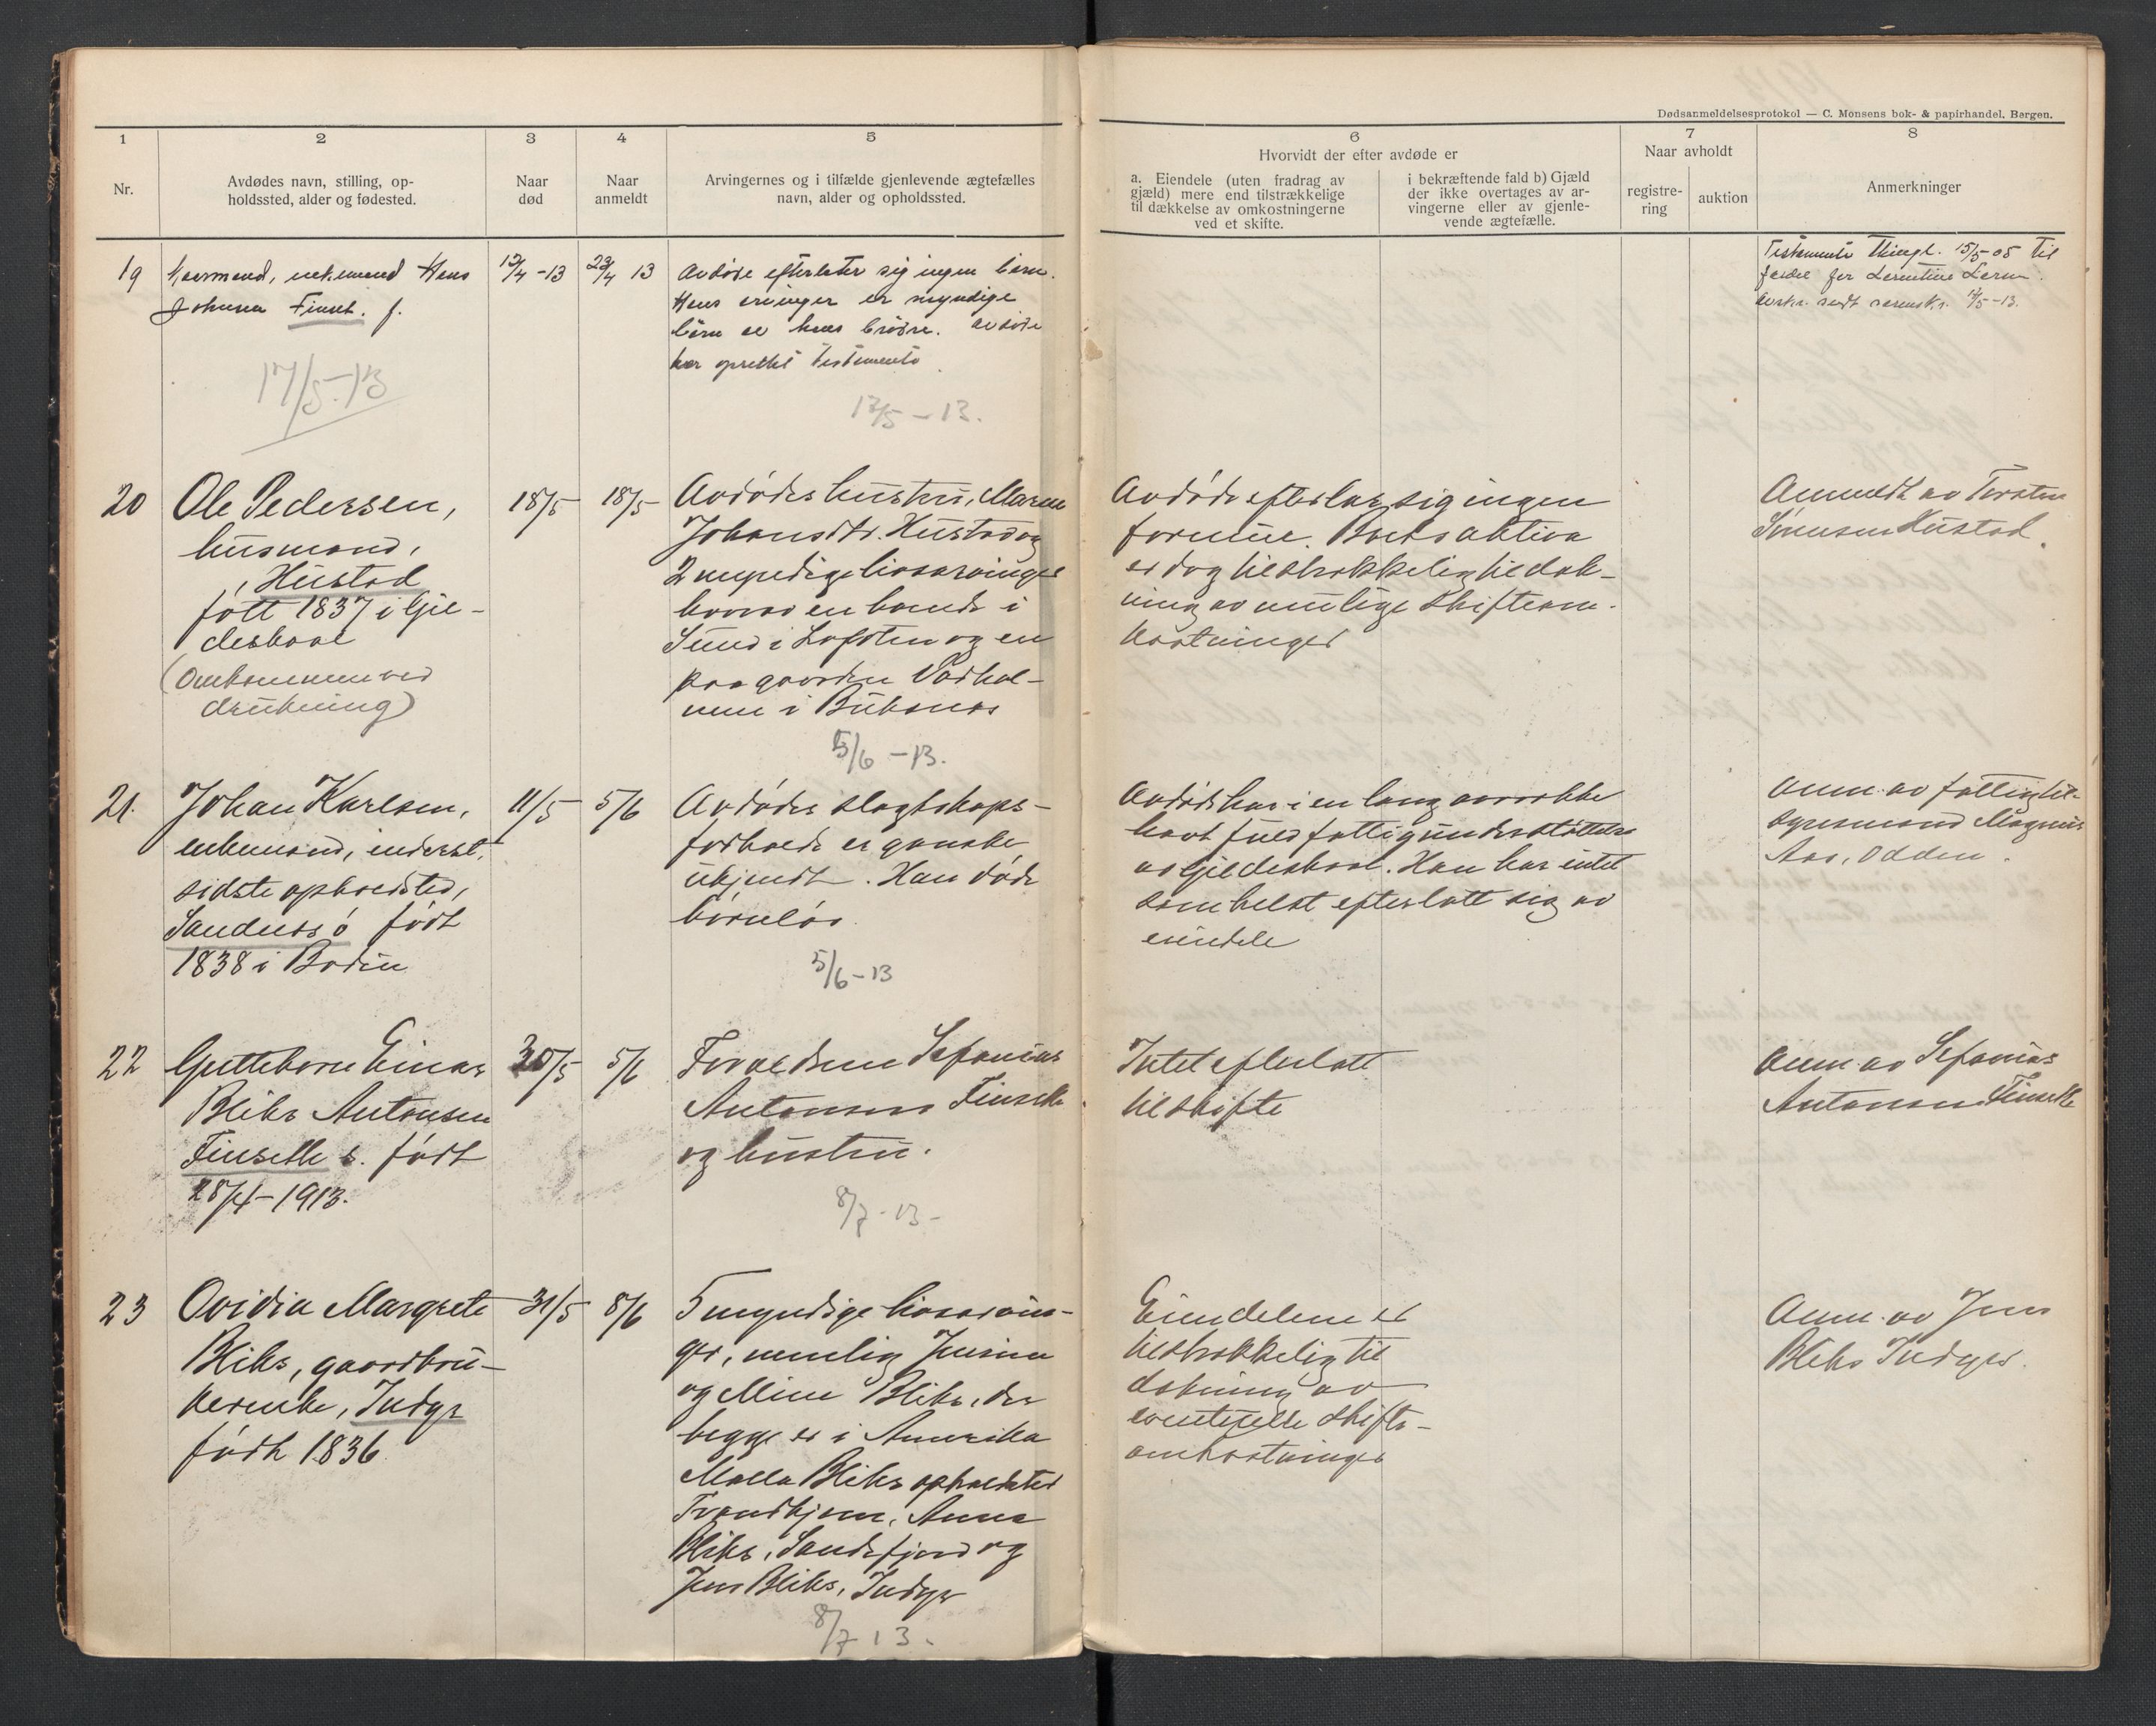 Dødsanmeldelsesprotokol — C. Monsens bok- & papirhandel, Bergen.
1
2
3
4
5
6
7
8
Nr.
Avdødes navn, stilling, op-
holdssted, alder og fødested.
Naar
død
Naar
anmeldt
Arvingernes og i tilfælde gjenlevende ægtefælles
navn, alder og opholdssted.
Hvorvidt der efter avdøde er
a. Eiendele (uten fradrag av
gjæld) mere end tilstrækkelige
til dækkelse av omkostningerne
ved et skifte.
i bekræftende fald b) Gjæld
der ikke overtages av ar-
vingerne eller av gjenle-
vende ægtefælle.
Naar avholdt
registre-
ring
auktion
Anmerkninger
19
Hans
Johnsen Finset. f.
17/5-13
12/4-13
23/4 13
Avdøde efterlater sig ingen børn.
Hans arvinger er myndige
børn av hans brødre. Avdøde
har oprettet testamente
13/5-13.
Testamente thingl. 15/5-05 til
20
Ole Pedersen,
husmand,
Hustad
født 1837 i Gil-
deskaal
(Omkommen ved
drukning)
18/5
18/5
Avdødes hustru, Maren
Johansdtr. Hustad og
2 myndige livsarvinger
hvorav en bande i
Sund i Lofoten og en
paa gaarden Vadhol-
men i Buksnes
5/6-13.
Avdøde efterlar sig ingen
formue. Boets aktiva
er dog tilstrækkelig til dæk-
ning av mulige skifteom-
kostninger
Anmeldt av Torsten
Simensen Hustad.
21.
Johan Karlsen,
enkemand, inderst,
sidste opholdsted,
Sandnessø født
1838 i Bodin
11/5
5/6
Avdødes slægtskaps-
forhold er ganske
ukjendt. Han døde
børnløs
5/6-13
Avdøde har i en lang aarrække
havt fuld fattigunderstøttelse
av Gildeskaal. Han har intet
somhelst efterlatt sig av
eiendele
Anm. av fattigtil-
synsmand Magnus
Aas, Odden.
22
Guttebarn Einar
Bliks Antonsen
Finsetli s. født
28/4-1913.
30/5
5/6
Forældrene Sefanias
Antonsen Finsetli
og hustru.
8/7-13-
Intet efterlatt
til skifte
Anm. av Sefanias
Antonsen Finsetli
23
Ovidia Margrete
Bliks, gaardbru-
kerenke, Indyr
født 1836
31/5
8/6
5 myndige livsarvin-
ger, nemlig Jensina
og Mine Bliks, der
begge er i Amerika
Malla Bliks opholdsted
Trondhjem, Anna
Bliks, Sandefjord og
Jens Bliks, Indyr
8/7 13.
Eiendelene er
tilstrækkelig til
dækning av
eventuelle skifte-
omkostninger
Anm. av Jens
Bliks Indyr.